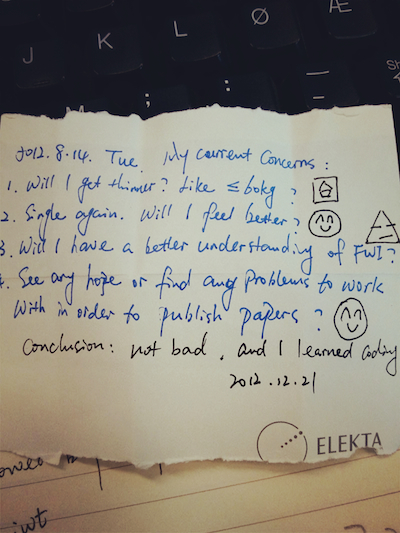 J
K
L
Ø
Æ
M
;
:
Sh
2012.8.14. Tue. My current Concerns:
1. Will I get thinner? Like ≤60kg?
2. Single again. Will I feel better?
3. Will I have a better understanding of FWI?
4. See any hope or find any problems to work
with in order to publish papers?
Conclusion: not bad, and I learned coding
2012.12.21
ELEKTA